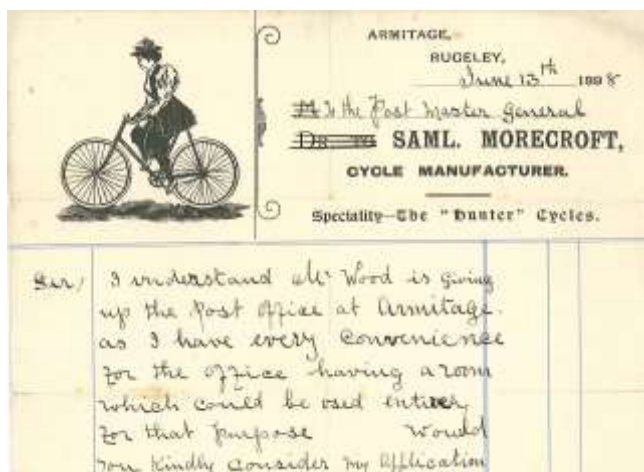 ARMITAGE,
RUGELEY,
June 13th 1898
M To the Post Master General
Dr. to SAML. MORECROFT,
CYCLE MANUFACTURER.
Speciality—The "Hunter" Cycles.
Sir/ I understand Mr Wood is giving
up the Post Office at Armitage.
as I have every convenience
for the office having a room
which could be used entirely
for that purpose would
you kindly consider my application